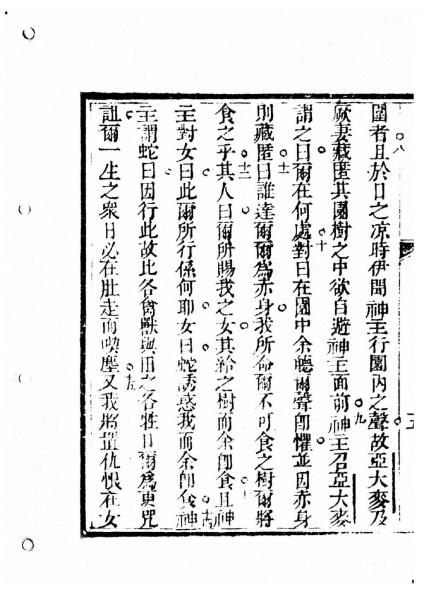 圍者八且於日之凉時伊聞神主行園內之聲故亞大麥及
厥妻藏匿其園樹之中欲自遊神主面前九神主召亞大麥
謂之曰爾在何處十對曰在園中余聽爾聲卽懼並因赤身
則藏匿十一曰誰達爾爾爲赤身我所命爾不可食之樹爾將
食之乎十二其人曰爾所賜我之女其給之樹而余卽食且神
主對女曰此爾所行係何耶女曰蛇誘惑我而余卽食神
主謂蛇曰因行此故比各禽獸與田之各牲口爾爲更咒
詛爾一生之衆日必在肚走而喫塵又我將置仇恨在女